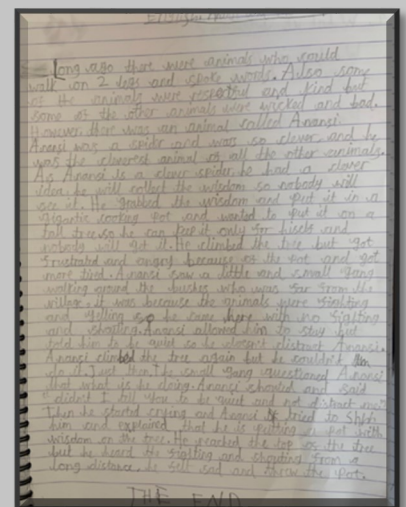 Long ago there were animals who could
walk on 2 legs and spoke words. Also some
of the animals were respectful and kind but
some of the other animals were wicked and bad.
However, there was an animal called Anansi.
Anansi was a spider and was so clever and he
was the cleverest animal of all the other animals.
As Anansi is a clever spider, he had a clever
idea. he will collect the wisdom so nobody will
see it. He grabbed the wisdom and put it in a
gigantic cooking pot and wanted to put it on a
tall tree so he can it only for and
nobody will get it. He climbed the tree but got
frustrated and angry because of the pot and got
more tired. Anansi saw a little and small
walking around the bushes who was far from the
village. It was because the animals were fighting
and yelling so he came here with no fighting
and shouting. Anansi allowed him to stay but
told him to be quiet so he doesn't distract Anansi.
Anansi climbed the tree again but he couldn't
do it. Just then, the small questioned Anansi
that what is he doing. Anansi shouted and said
" didn't I tell you to be quiet and not distract me"
Then he started crying and Anansi tried to
him and explained that he is putting a pot with
wisdom on the tree. He reached the top of the tree
but he heard the fighting and shouting from a
long distance. he felt sad and threw the pot.
THE END